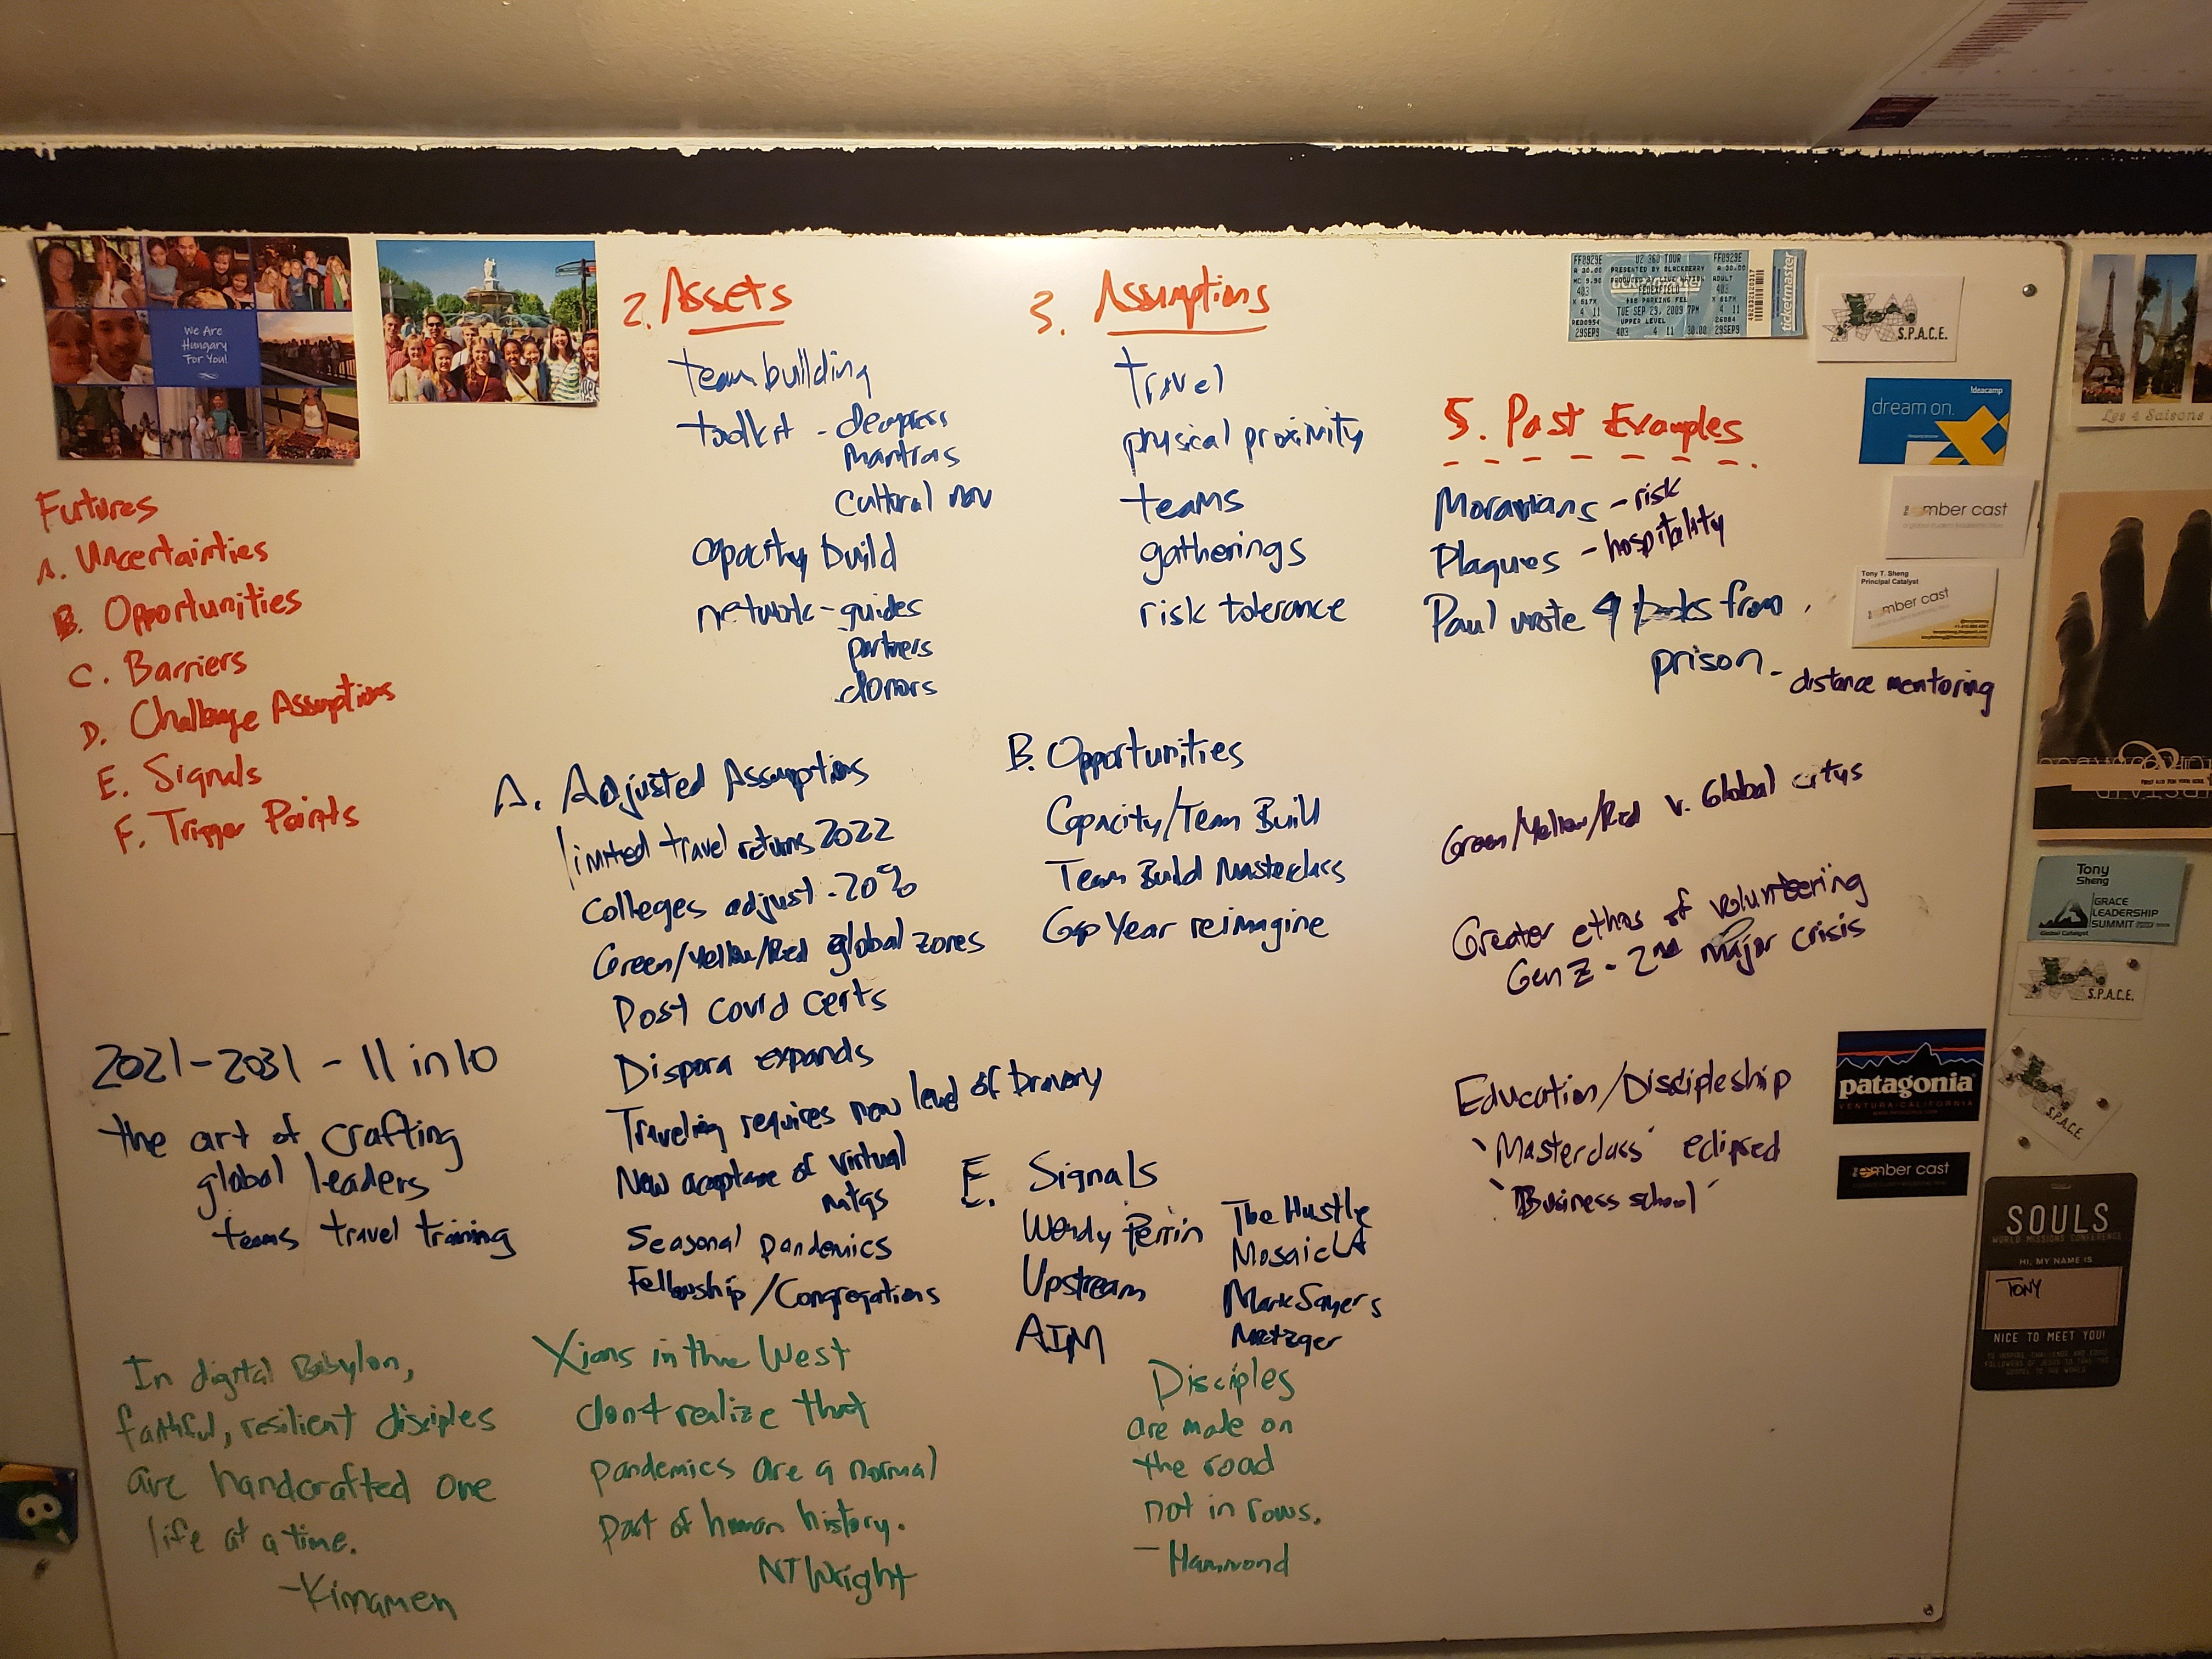 We Are
Hungary
For You!
Futures
A. Uncertainties
B. Opportunities
C. Barriers
D. Challenge Assumptions
E. Signals
F. Trigger Points
2021-2031 - 11 in 10
the art of crafting
global leaders
teams travel training
In digital Babylon,
faithful, resilient disciples
are handcrafted one
life at a time.
-Kinnamen
2. Assets
team building
toolkit -
mantras
cultural nav
capacity build
network - guides
partners
donors
A. Adjusted Assumptions
limited travel returns 2022
Colleges adjust -20%
Green/Yellow/Red global zones
Post Covid Certs
Dispora expands
Traveling requires new level of bravery
New acceptance of virtual
mtgs
Seasonal pandemics
Fellowship/Congregations
Xians in the West
dont realize that
pandemics are a normal
part of human history.
NT Wright
3. Assumptions
travel
physical proximity
teams
gatherings
risk tolerance
B. Opportunities
Capacity/Team Build
Team Build Masterclass
Gap Year reimagine
E. Signals
Wendy Perrin
Upstream
AIM
The Hustle
Mosaic LA
Mark Sayers
Metzger
Disciples
are made on
the road
not in rows.
- Hammond
5. Past Examples
Moravians - risk
Plagues - hospitality
Paul wrote 4 books from
prison - distance mentoring
Green/Yellow/Red v. Global citys
Greater ethos of volunteering
Gen Z - 2nd major crisis
Education/Discipleship
'Masterclass' eclipsed
'Business school'
FF0929E U2 360 TOUR FF0929E
PRESENTED BY BLACKBERRY
FEDEXFIELD
TUE SEP 29, 2009 7PM
UPPER LEVEL
29SEP9 403 4 11 30.00 29SEP9
ticketmaster
S.P.A.C.E.
Ideacamp
dream on.
ember cast
Tony T. Sheng
Principal Catalyst
ember cast
patagonia
VENTURA CALIFORNIA
ember cast
Les 4 Saisons
Tony
Sheng
GRACE
LEADERSHIP
SUMMIT
Global Catalyst
S.P.A.C.E.
S.P.A.C.E.
SOULS
WORLD MISSIONS CONFERENCE
HI, MY NAME IS
TONY
NICE TO MEET YOU!